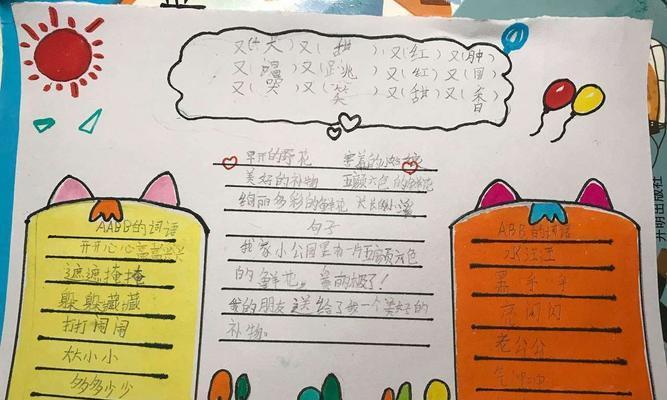 又( 哭)又( 甜 ),又(红)又(肿
又( 唱)又(跳)又(红)又(圆
又( 哭)又( 笑)又(甜)又(香
早开的野花 害羞的小姑娘
美好的礼物 五颜六色的鲜花
绚丽多彩的鲜花
句子
我家小公园里有一片五颜六色
的鲜花。美丽极了!
我的朋友送给了我一个美好的
礼物。
AABB的词语
开开心心 高高兴兴
遮遮掩掩
躲躲藏藏
打打闹闹
大大小小
多多少少
ABB的词语
水汪汪
亮闪闪
老公公
气冲冲
开明出版社